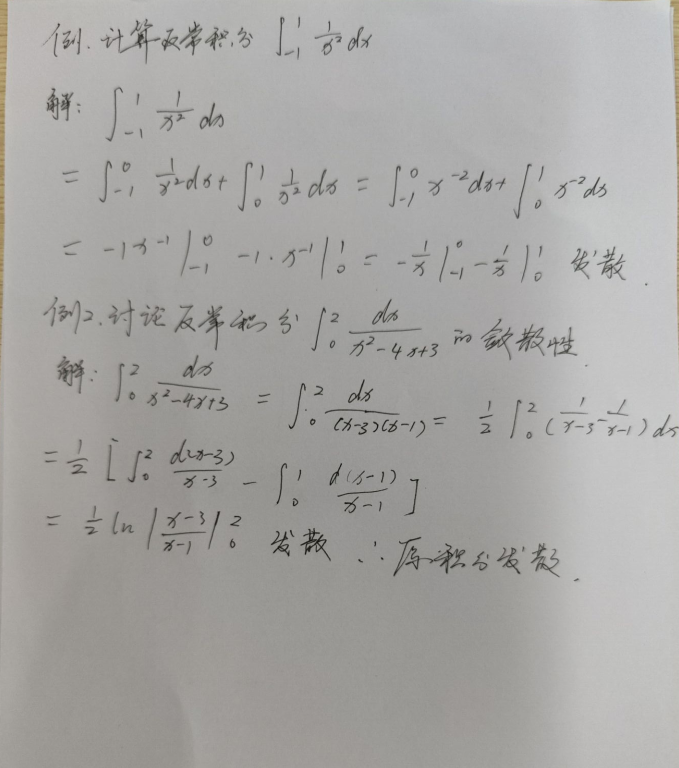 例.计算反常积分 ∫_{-1}^{1} 1/x² dx
解: ∫_{-1}^{1} 1/x² dx
= ∫_{-1}^{0} 1/x² dx + ∫_{0}^{1} 1/x² dx = ∫_{-1}^{0} x^{-2} dx + ∫_{0}^{1} x^{-2} dx
= -1·x^{-1} |_{-1}^{0} -1·x^{-1} |_{0}^{1} = -1/x |_{-1}^{0} - 1/x |_{0}^{1} 发散.
例2.讨论反常积分 ∫_{0}^{2} dx/(x²-4x+3) 的敛散性.
解: ∫_{0}^{2} dx/(x²-4x+3) = ∫_{0}^{2} dx/((x-3)(x-1)) = 1/2 ∫_{0}^{2} (1/(x-3) - 1/(x-1)) dx
= 1/2 [∫_{0}^{2} d(x-3)/(x-3) - ∫_{0}^{1} d(x-1)/(x-1)]
= 1/2 ln |(x-3)/(x-1)| _{0}^{2} 发散 ∴ 原积分发散.